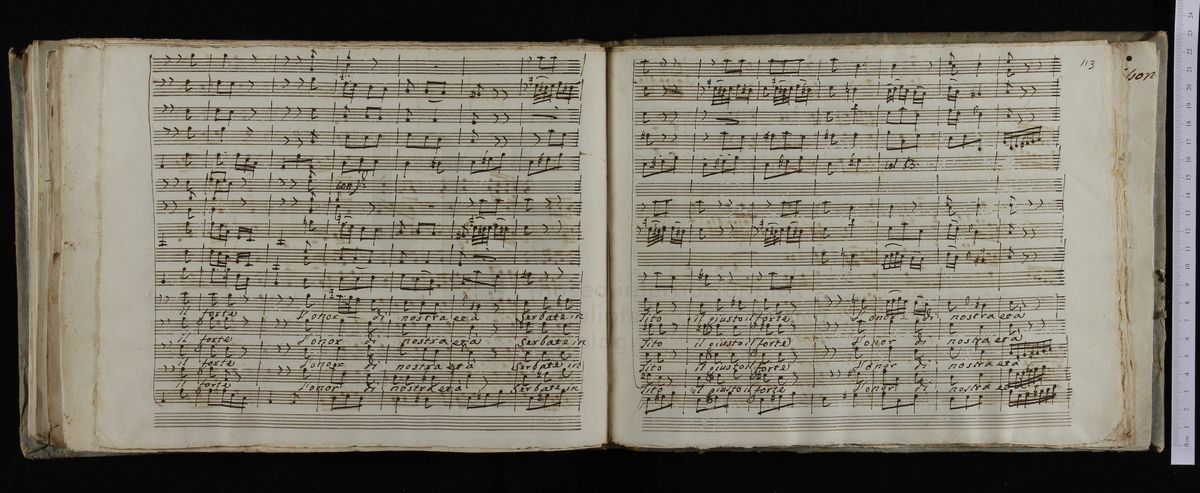 113
con
il forte l'onor di nostra età Serbate in
il forte l'onor di nostra età Serbate in
il forte l'onor di nostra età Serbate in
il forte l'onor di nostra età Serbate in
col B.
Tito il giusto il forte l'onor di nostra età
Tito il giusto il forte l'onor di nostra età
Tito il giusto il forte l'onor di nostra età
Tito il giusto il forte l'onor di nostra età